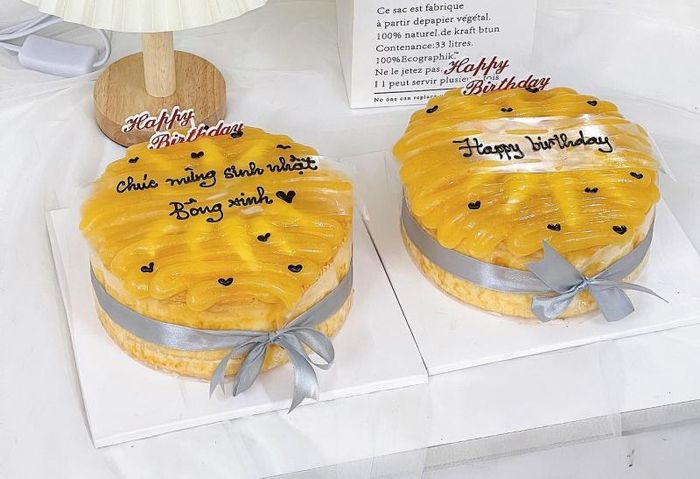 Ce sac est fabrique
à partir depapier végétal.
100% naturel.de kraft btun
Contenance:33 litres.
100%Ecographik.™
Ne le jetez pas.
I 1 peut servir plusieu fois
No one can replac
Happy
Birthday
chúc mừng sinh nhật
Bông xinh
Happy
Birthday
Happy birthday